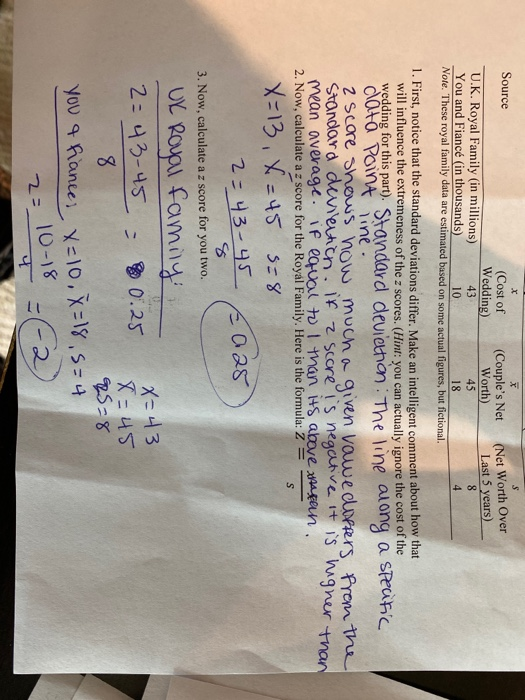 Source
x
(Cost of
Wedding)
x̄
(Couple's Net
Worth)
s
(Net Worth Over
Last 5 years)
U.K. Royal Family (in millions) 43 45 8
You and Fiancé (in thousands) 10 18 4
Note. These royal family data are estimated based on some actual figures, but fictional.
1. First, notice that the standard deviations differ. Make an intelligent comment about how that
will influence the extremeness of the z scores. (Hint: you can actually ignore the cost of the
wedding for this part).
Standard deviation: The line along a specific
data point line.
z score shows how much a given value differs from the
standard deviation. If z score is negative it is higher than
mean average. If equal to 1 than its above mean.
2. Now, calculate a z score for the Royal Family. Here is the formula: Z = —
s
X=13, X̄=45 s=8
z = 43-45
8
= 0.25
3. Now, calculate a z score for you two.
UK Royal family:
z = 43-45 = 0.25
8
x=43
x̄=45
s=8
you & fiance: x=10, x̄=18, s=4
z = 10-18 = -2
4